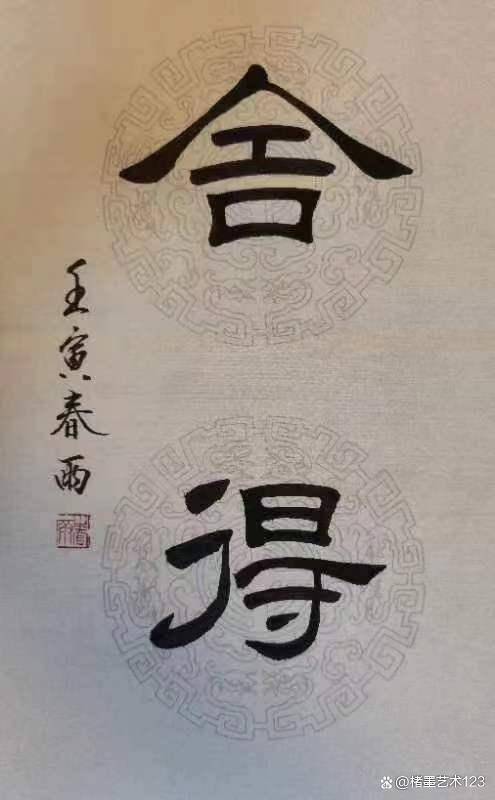 舍得
壬寅春雨
@楮墨艺术123